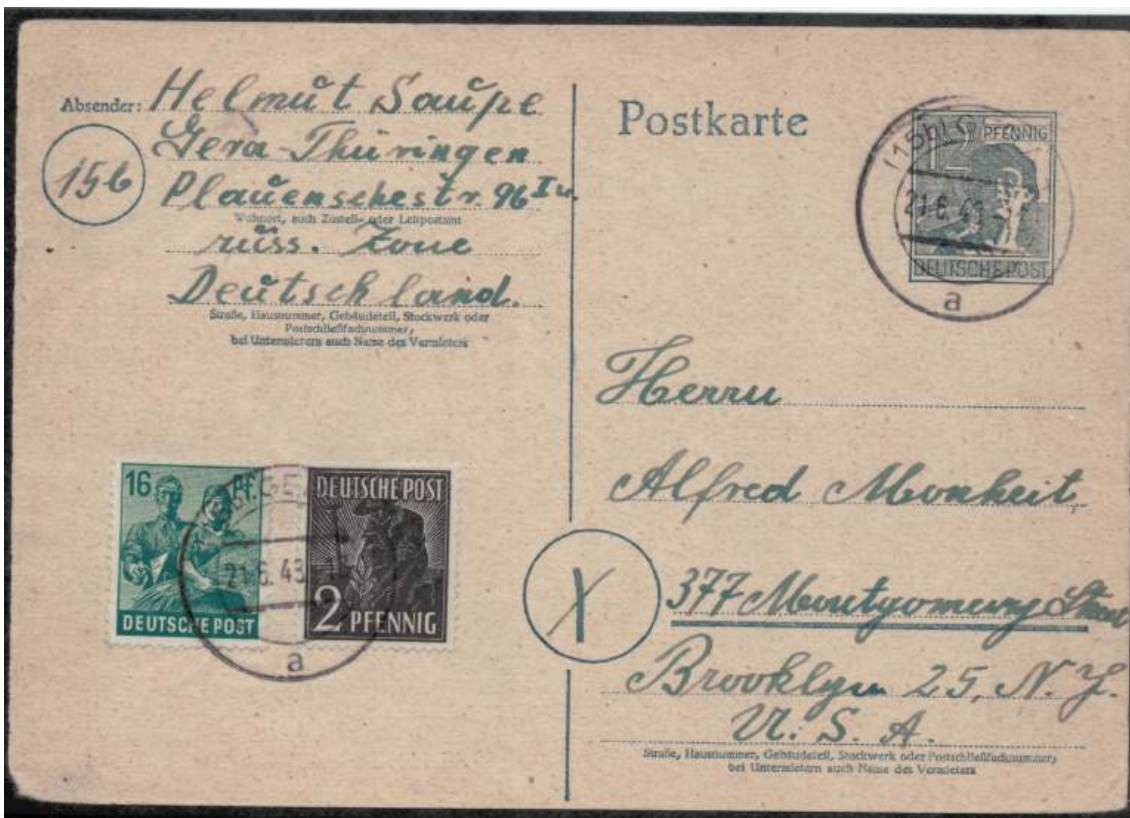 Absender: Helmut Saupe
Gera-Thüringen
15b
Plauenschestr. 96 I u.
Wohnort, auch Zustell- oder Leitpostamt
russ. Zone
Deutschland.
Straße, Hausnummer, Gebäudeteil, Stockwerk oder
Postschließfachnummer,
bei Untermietern auch Name des Vermieters
16 Pf.
DEUTSCHE POST
DEUTSCHE POST
2 PFENNIG
21.6.48
a
Postkarte
12 PFENNIG
DEUTSCHE POST
(15b)
21.6.48
a
Herrn
Alfred Monheit
X
377 Montgomery
Brooklyn 25, N. Y.
U. S. A.
Straße, Hausnummer, Gebäudeteil, Stockwerk oder Postschließfachnummer,
bei Untermietern auch Name des Vermieters